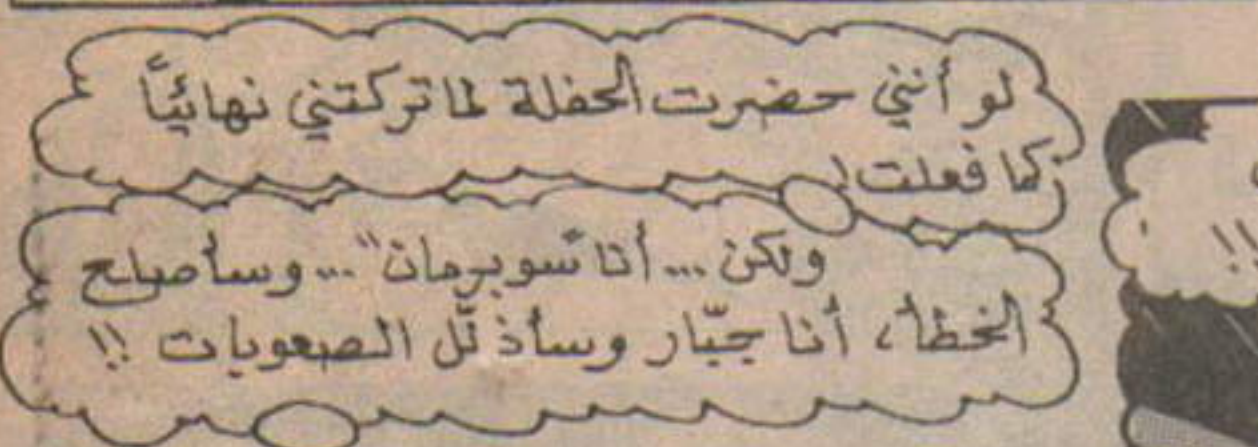 لو أنني حضرت الحفلة لما تركتني نهائيًا
كما فعلت!
ولكن ... أنا "سوبرمان" ... وسأصلح
الخطأ، أنا جبّار وسأذلّل الصعوبات !!
!!